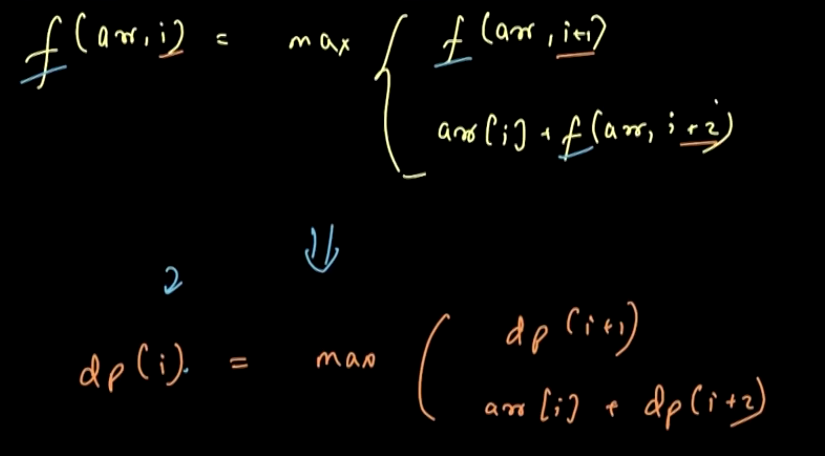 f(arr, i) = max { f(arr, i+1)
arr[i] + f(arr, i+2)
⇓
2
dp(i) = max ( dp(i+1)
arr[i] + dp(i+2)